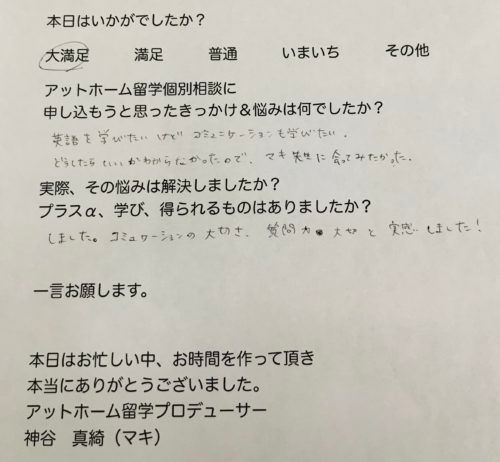 本日はいかがでしたか？
大満足 満足 普通 いまいち その他
アットホーム留学個別相談に
申し込もうと思ったきっかけ＆悩みは何でしたか？
英語を学びたいけど コミュニケーションも学びたい．
どうしたらいいかわからなかったので、マキ先生に会ってみたかった．
実際、その悩みは解決しましたか？
プラスα、学び、得られるものはありましたか？
しました。コミュケーションの大切さ、質問力 大切と 実感しました！
一言お願します。
本日はお忙しい中、お時間を作って頂き
本当にありがとうございました。
アットホーム留学プロデューサー
神谷 真綺（マキ）